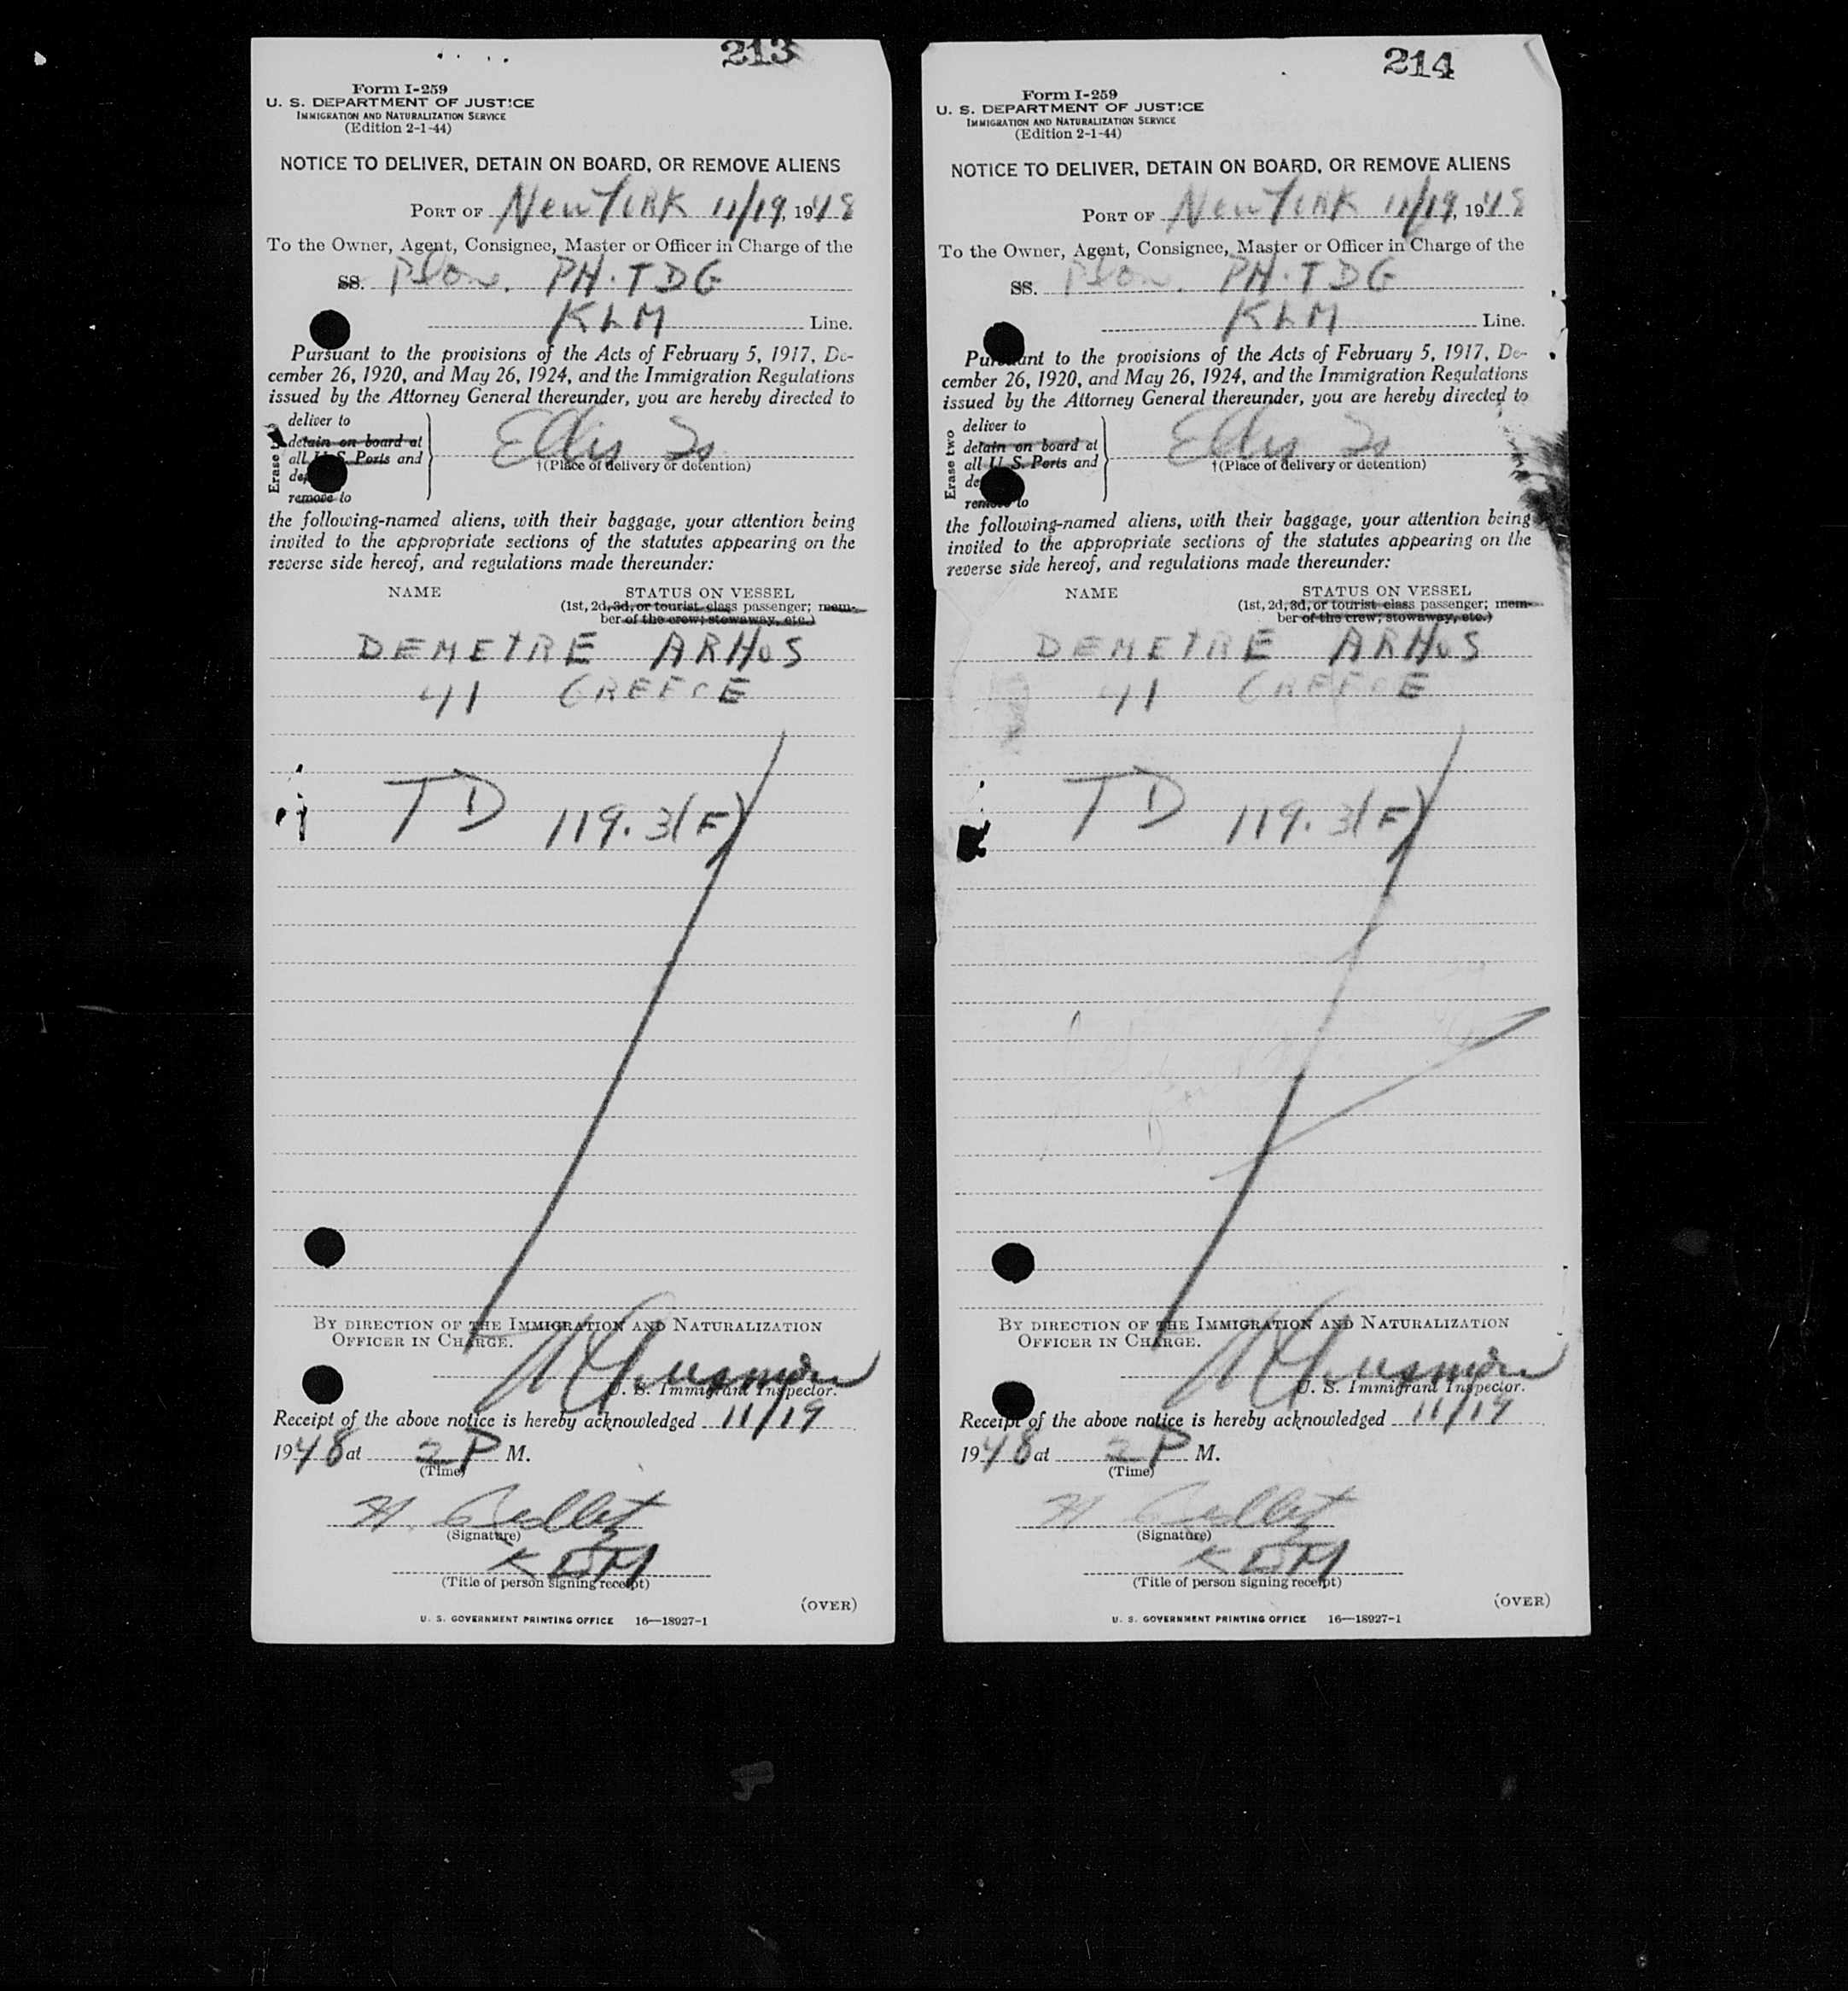 213
Form I-259
U. S. DEPARTMENT OF JUSTICE
IMMIGRATION AND NATURALIZATION SERVICE
(Edition 2-1-44)
NOTICE TO DELIVER, DETAIN ON BOARD, OR REMOVE ALIENS
PORT OF New York 11/19, 1948
To the Owner, Agent, Consignee, Master or Officer in Charge of the
SS. PH-TDG
KLM Line.
Pursuant to the provisions of the Acts of February 5, 1917, De-
cember 26, 1920, and May 26, 1924, and the Immigration Regulations
issued by the Attorney General thereunder, you are hereby directed to
Erase
deliver to
detain on board at
all U. S. Ports and
remove to
Ellis Is
†(Place of delivery or detention)
the following-named aliens, with their baggage, your attention being
invited to the appropriate sections of the statutes appearing on the
reverse side hereof, and regulations made thereunder:
NAME STATUS ON VESSEL
(1st, 2d, 3d, or tourist class passenger; mem-
ber of the crew; stowaway, etc.)
DEMETRE ARHOS
41 GREECE
TD 119.3(F)
BY DIRECTION OF THE IMMIGRATION AND NATURALIZATION
OFFICER IN CHARGE.
U. S. Immigrant Inspector.
Receipt of the above notice is hereby acknowledged 11/19
1948 at 2 P M.
(Time)
H.
(Signature)
KLM
(Title of person signing receipt)
(OVER)
U. S. GOVERNMENT PRINTING OFFICE 16—18927-1
214
Form I-259
U. S. DEPARTMENT OF JUSTICE
IMMIGRATION AND NATURALIZATION SERVICE
(Edition 2-1-44)
NOTICE TO DELIVER, DETAIN ON BOARD, OR REMOVE ALIENS
PORT OF New York 11/19, 1948
To the Owner, Agent, Consignee, Master or Officer in Charge of the
SS. PH-TDG
KLM Line.
Pursuant to the provisions of the Acts of February 5, 1917, De-
cember 26, 1920, and May 26, 1924, and the Immigration Regulations
issued by the Attorney General thereunder, you are hereby directed to
Erase two
deliver to
detain on board at
all U. S. Ports and
remove to
Ellis Is
†(Place of delivery or detention)
the following-named aliens, with their baggage, your attention being
invited to the appropriate sections of the statutes appearing on the
reverse side hereof, and regulations made thereunder:
NAME STATUS ON VESSEL
(1st, 2d, 3d, or tourist class passenger; mem-
ber of the crew; stowaway, etc.)
DEMETRE ARHOS
41 GREECE
TD 119.3(F)
BY DIRECTION OF THE IMMIGRATION AND NATURALIZATION
OFFICER IN CHARGE.
U. S. Immigrant Inspector.
Receipt of the above notice is hereby acknowledged 11/19
1948 at 2 P M.
(Time)
H.
(Signature)
KLM
(Title of person signing receipt)
(OVER)
U. S. GOVERNMENT PRINTING OFFICE 16—18927-1